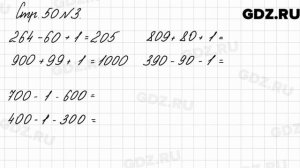 Стр. 50 N 3 GDZ.RU
264 - 60 + 1 = 205 809 + 80 + 1 =
900 + 99 + 1 = 1000 390 - 90 - 1 =
700 - 1 - 600 =
400 - 1 - 300 =